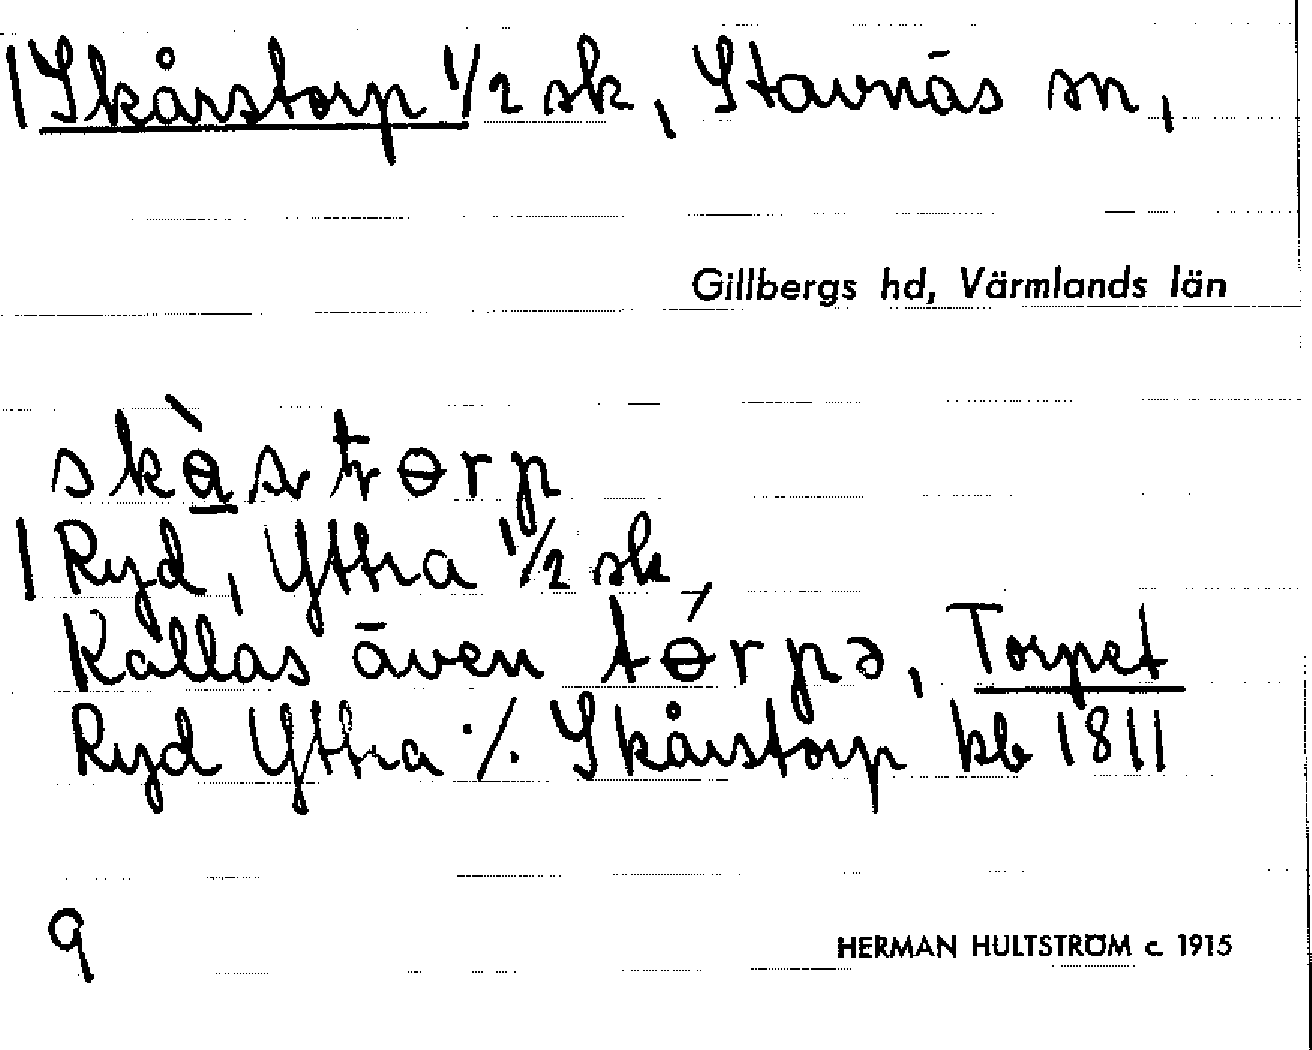 Skårstorp 1/2 sk, Stavnäs sn,
Gillbergs hd, Värmlands län
Ryd, Yttra 1/2 sk,
Kallas även tɵ́rpə, Torpet
Ryd Yttra ·/. Skårstorp kb 1811
9
HERMAN HULTSTRÖM c. 1915